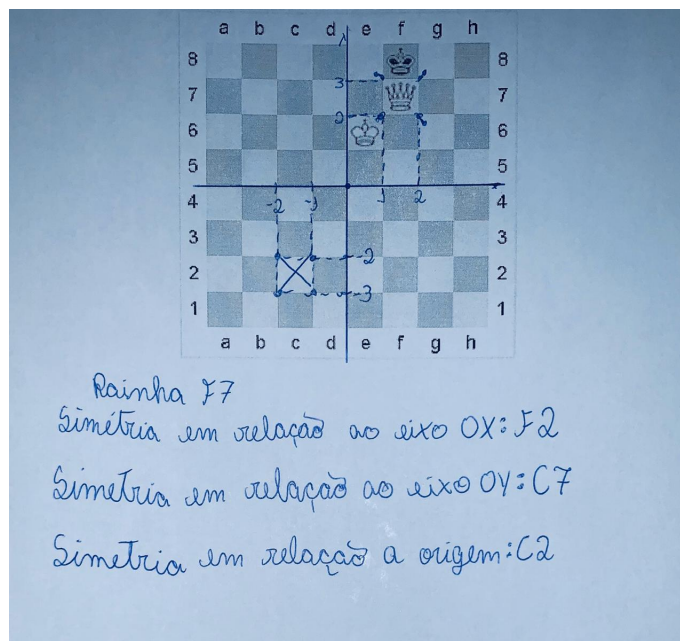 a b c d e f g h
8 8
7 3 7
6 2 6
5 5
4 -2 -1 1 2 4
3 3
2 -2 2
1 -3 1
a b c d e f g h
Rainha F7
Simétria em relação ao eixo OX: F2
Simetria em relação ao eixo OY: C7
Simetria em relação a origem: C2